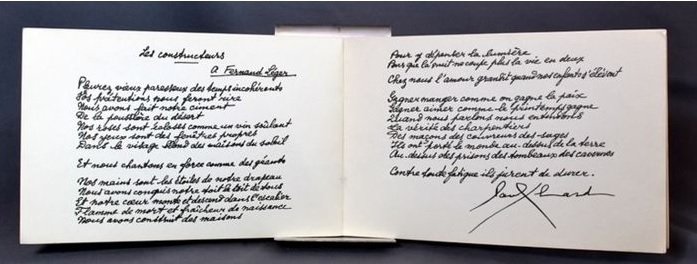 Les constructeurs
A Fernand Léger
Pleurez vieux paresseux des temps incohérents
Vos prétentions nous feront rire
Nous avons fait notre ciment
De la poussière du désert
Nos roses sont écloses comme un vin soûlant
Nos yeux sont des fenêtres propres
Dans le visage blond des maisons du soleil
Et nous chantons en force comme des géants
Nos mains sont les étoiles de notre drapeau
Nous avons conquis notre toit le toit de tous
Et notre cœur monte et descend dans l'escalier
Flamme de mort et fraîcheur de naissance
Nous avons construit des maisons
Pour y dépenser la lumière
Pour que la nuit ne coupe plus la vie en deux
Chez nous l'amour grandit quand nos enfants s'élèvent
Gagner manger comme on gagne la paix
Gagner aimer comme le printemps gagne
Quand nous parlons nous entendons
La vérité des charpentiers
Des maçons des couvreurs des sages
Ils ont porté le monde au-dessus de la terre
Au-dessus des prisons des tombeaux des cavernes
Contre toute fatigue ils jurent de durer.
Paul Eluard